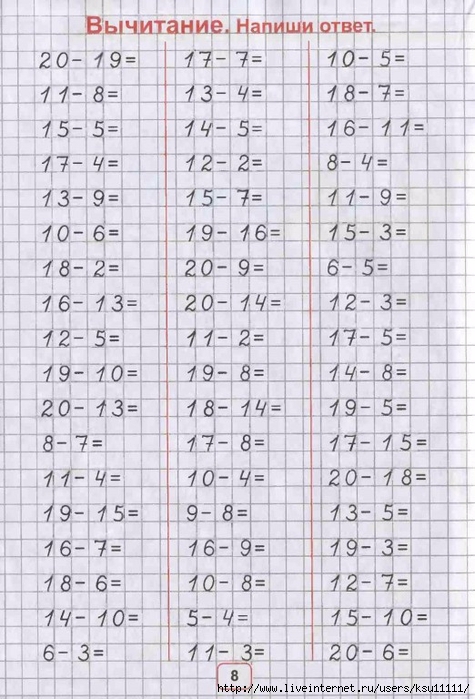 Вычитание. Напиши ответ.
20-19= 17-7= 10-5=
11-8= 13-4= 18-7=
15-5= 14-5= 16-11=
17-4= 12-2= 8-4=
13-9= 15-7= 11-9=
10-6= 19-16= 15-3=
18-2= 20-9= 6-5=
16-13= 20-14= 12-3=
12-5= 11-2= 17-5=
19-10= 19-8= 14-8=
20-13= 18-14= 19-5=
8-7= 17-8= 17-15=
11-4= 10-4= 20-18=
19-15= 9-8= 13-5=
16-7= 16-9= 19-3=
18-6= 10-8= 12-7=
14-10= 5-4= 15-10=
6-3= 11-3= 20-6=
8
http://www.liveinternet.ru/users/ksu11111/